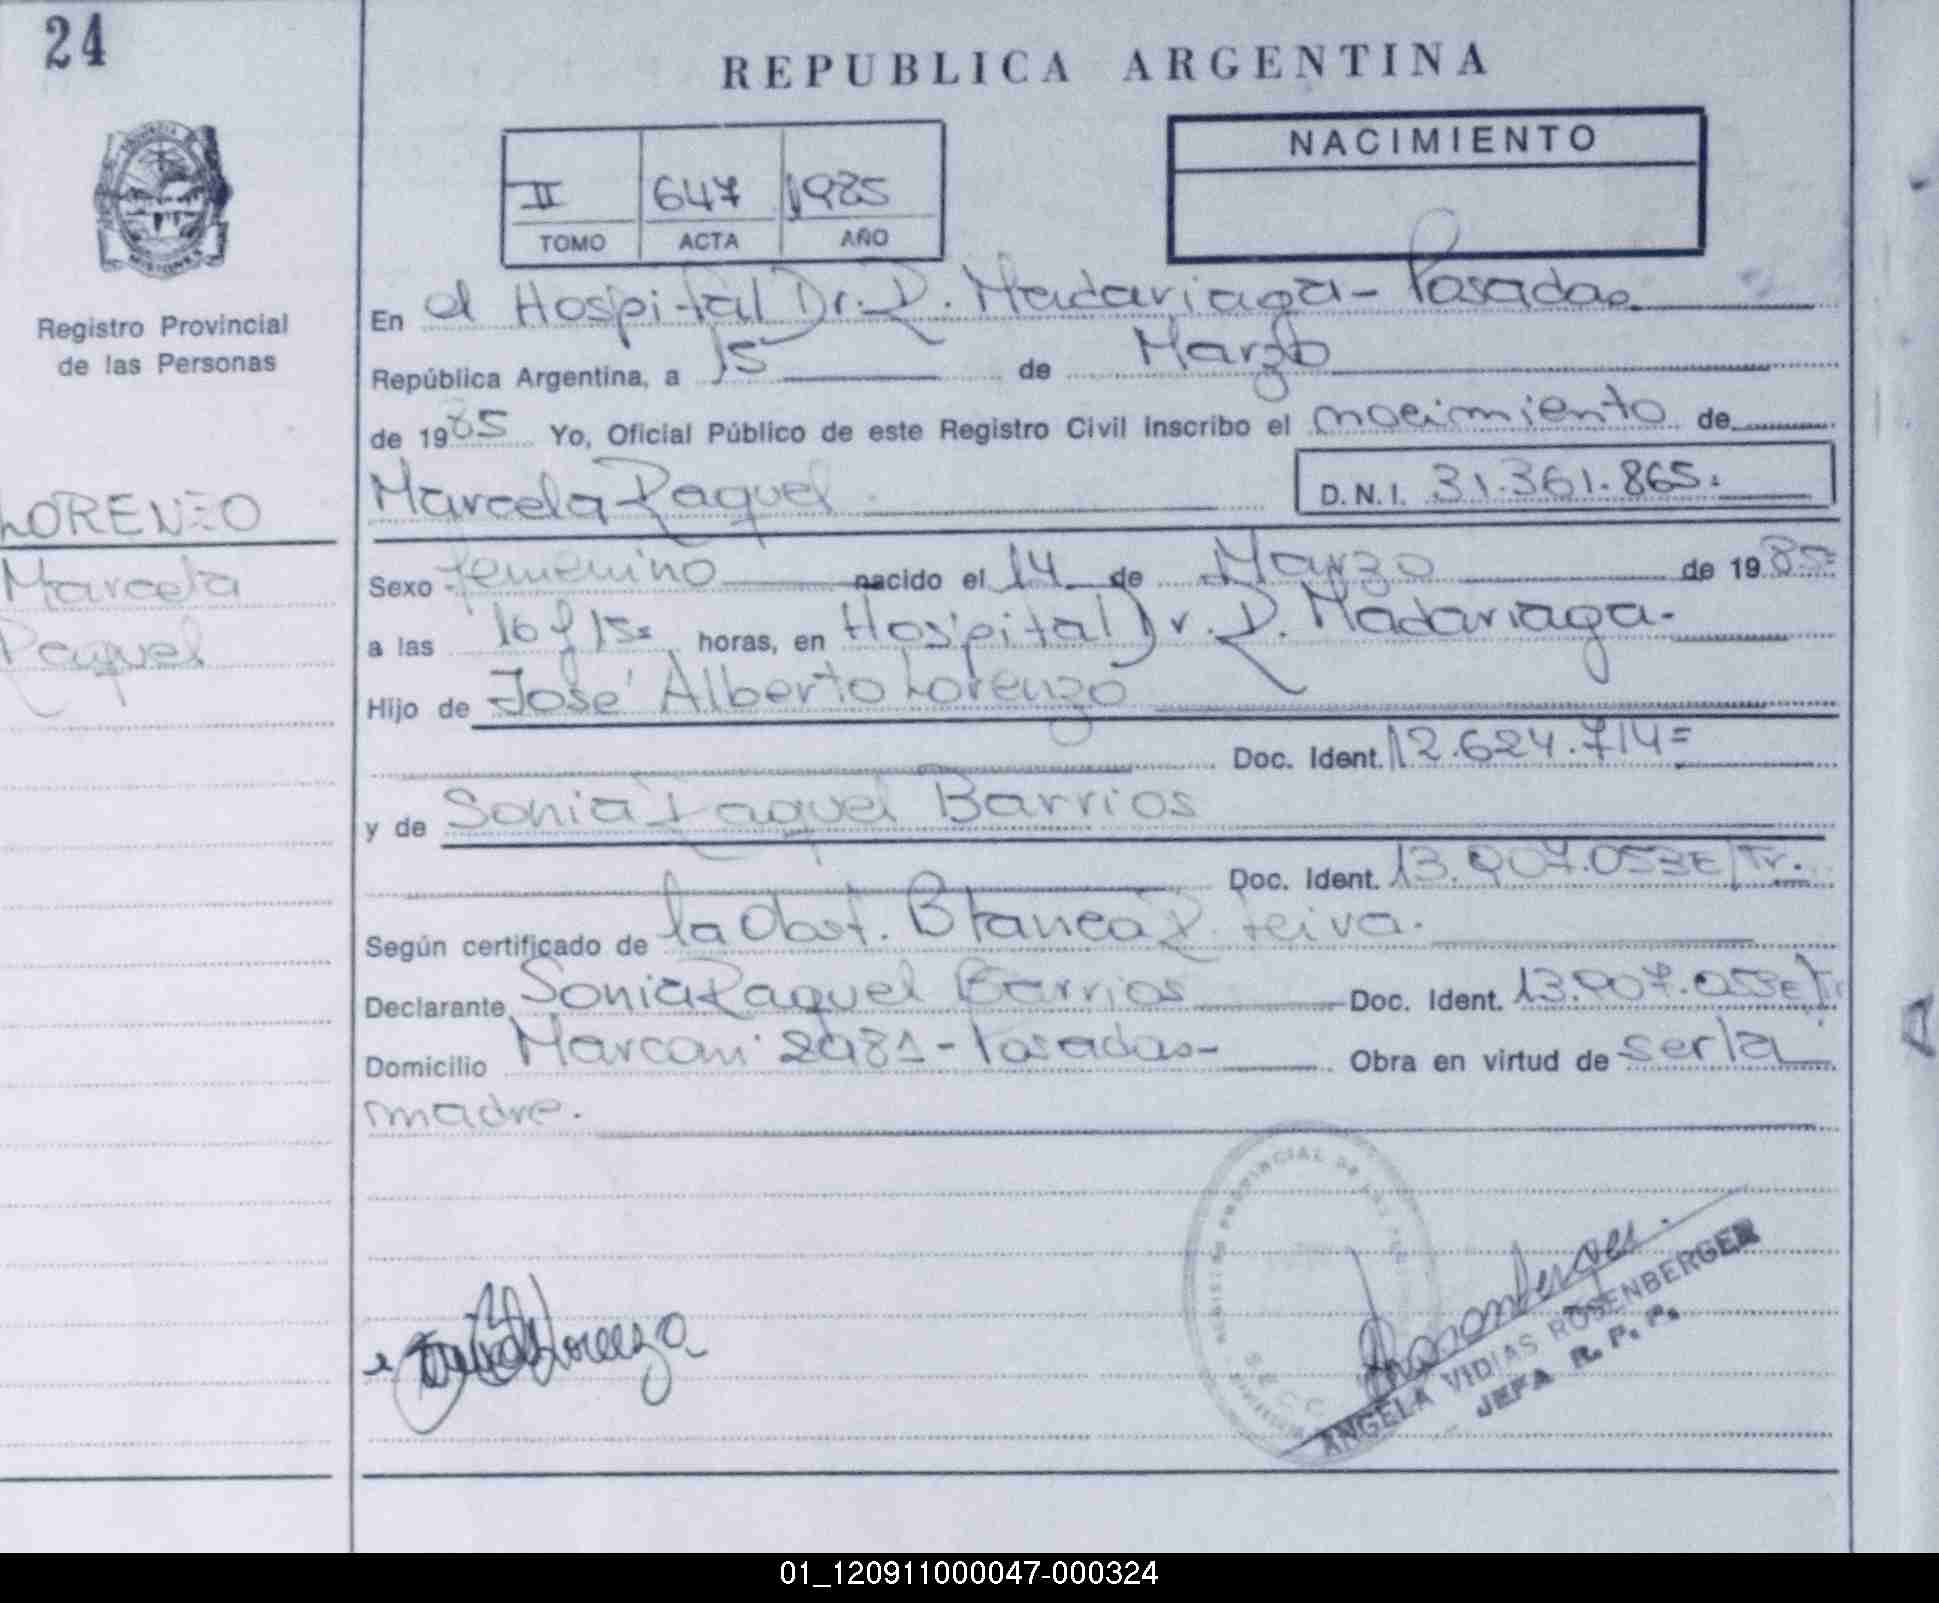 24
REPUBLICA ARGENTINA
NACIMIENTO
II 647 1985
TOMO ACTA AÑO
Registro Provincial
de las Personas
En el Hospital Dr. R. Madariaga - Posadas.
República Argentina, a 15 de Marzo
de 1985 Yo, Oficial Público de este Registro Civil inscribo el nacimiento de
Marcela Raquel D.N.I. 31.361.865.
LORENZO
Marcela
Raquel
Sexo femenino nacido el 14 de Marzo de 1985
a las 16 y 15 horas, en Hospital Dr. R. Madariaga-
Hijo de José Alberto Lorenzo
Doc. Ident. 12.624.714=
y de Sonia Raquel Barrios
Doc. Ident. 13.907.053E/Tr.
Según certificado de la Obst. Blanca R. Leiva.
Declarante Sonia Raquel Barrios Doc. Ident. 13.907.053E/Tr
Domicilio Marconi 2981 - Posadas- Obra en virtud de ser la
madre.
REGISTRO PROVINCIAL DE LAS
ANGELA VIDIAS ROSENBERGER
JEFA R. P. P.
01_120911000047-000324